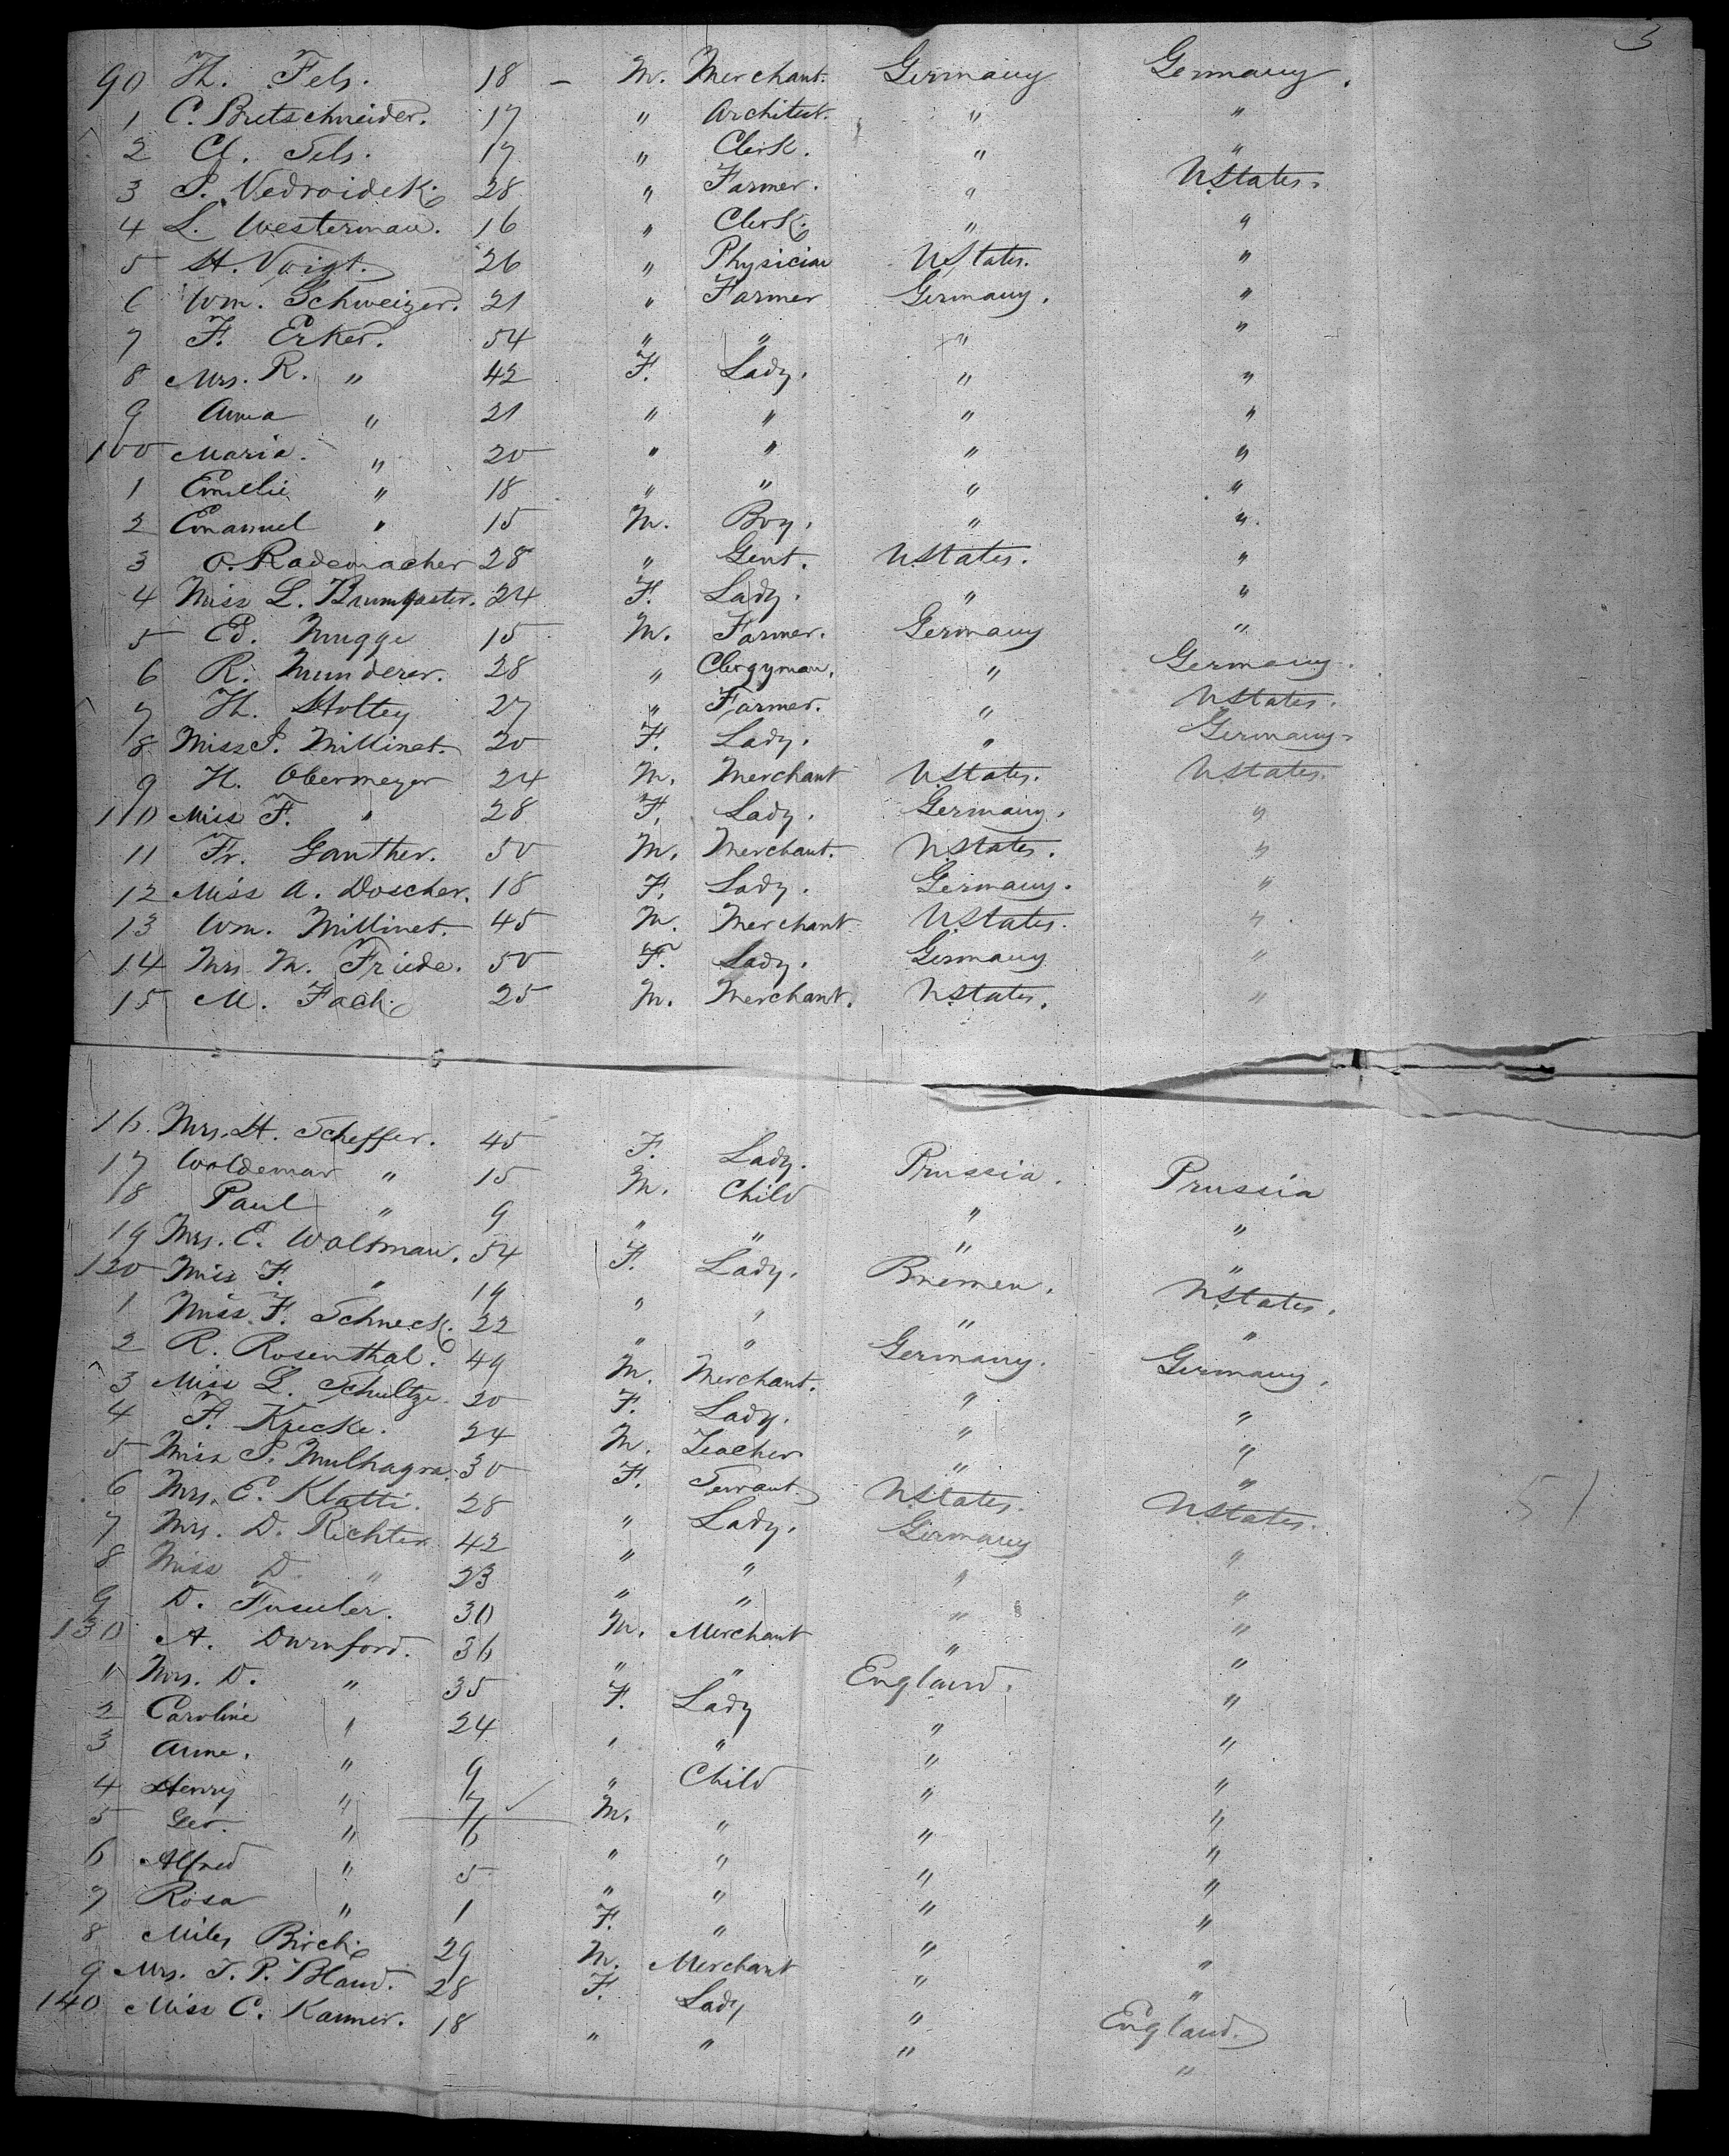 3
90 Th. Fels. 18 – M. Merchant. Germany Germany.
1 C. Bretschneider. 17 " Architect. " "
2 Cl. Fels. 17 " Clerk. " "
3 P. Vedroidek. 28 " Farmer. " UStates.
4 L. Westerman. 16 " Clerk. " "
5 H. Voigt. 26 " Physician UStates. "
6 Wm. Schweizer. 21 " Farmer Germany. "
7 F. Erker. 54 " " " "
8 Mrs. R. " 42 F. Lady. " "
9 Anna " 21 " " " "
100 Maria. " 20 " " " "
1 Emilie " 18 " " " "
2 Emanuel " 15 M. Boy. " "
3 O. Rademacher 28 " Gent. UStates. "
4 Miss L. 24 F. Lady. " "
5 Ed. Mugge 15 M. Farmer. Germany "
6 R. Munderer. 28 " Clergyman. " Germany.
7 Th. Holtey 27 " Farmer. " UStates.
8 Miss P. Millinet. 20 F. Lady. " Germany.
9 H. Obermeyer 24 M. Merchant UStates. UStates.
110 Miss F. " 28 F. Lady. Germany. "
11 Fr. Ganther. 50 M. Merchant. UStates. "
12 Miss A. Doscher. 18 F. Lady. Germany. "
13 Wm. Millinet. 45 M. Merchant UStates. "
14 Mrs M. Friede. 50 F. Lady. Germany "
15 M. Fack. 25 M. Merchant. UStates. "
16. Mrs. H. Scheffer. 45 F. Lady. Prussia. Prussia
17 Woldemar " 15 M. Child " "
18 Paul " 9 " " " "
19 Mrs. E. Woltman. 54 F. Lady. Bremen. UStates.
120 Miss F. " 19 " " " "
1 Miss F. Schneck. 22 " " Germany. Germany.
2 R. Rosenthal. 49 M. Merchant. " "
3 Miss L. Schultze. 20 F. Lady. " "
4 F. Krecke. 24 M. Teacher " "
5 Miss P. Mulhagra. 30 F. Servant. UStates. UStates.
6 Mrs. E. Klatti. 28 " Lady. Germany "
7 Mrs. D. Richter 42 " " " "
8 Miss D. " 23 " " " "
9 D. 30 M. Merchant " "
130 A. Durnford. 36 " " England. "
" Mrs. D. " 35 F. Lady " "
2 Caroline " 24 " " " "
3 Anne. " 9 " Child " "
4 Henry " 7 M. " " "
5 Geo. " 6 " " " "
6 Alfred " 5 " " " "
7 Rosa " 1 F. " " "
8 Miles Birch. 29 M. Merchant " "
9 Mrs. T. P. Bland. 28 F. Lady " England.
140 Miss C. Kanner. 18 " " " "
51